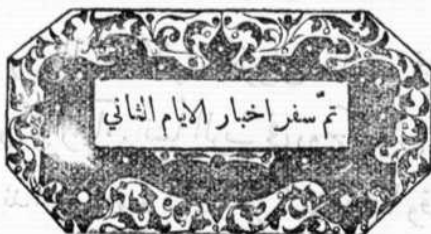 تمّ سفر اخبار الايام الثاني